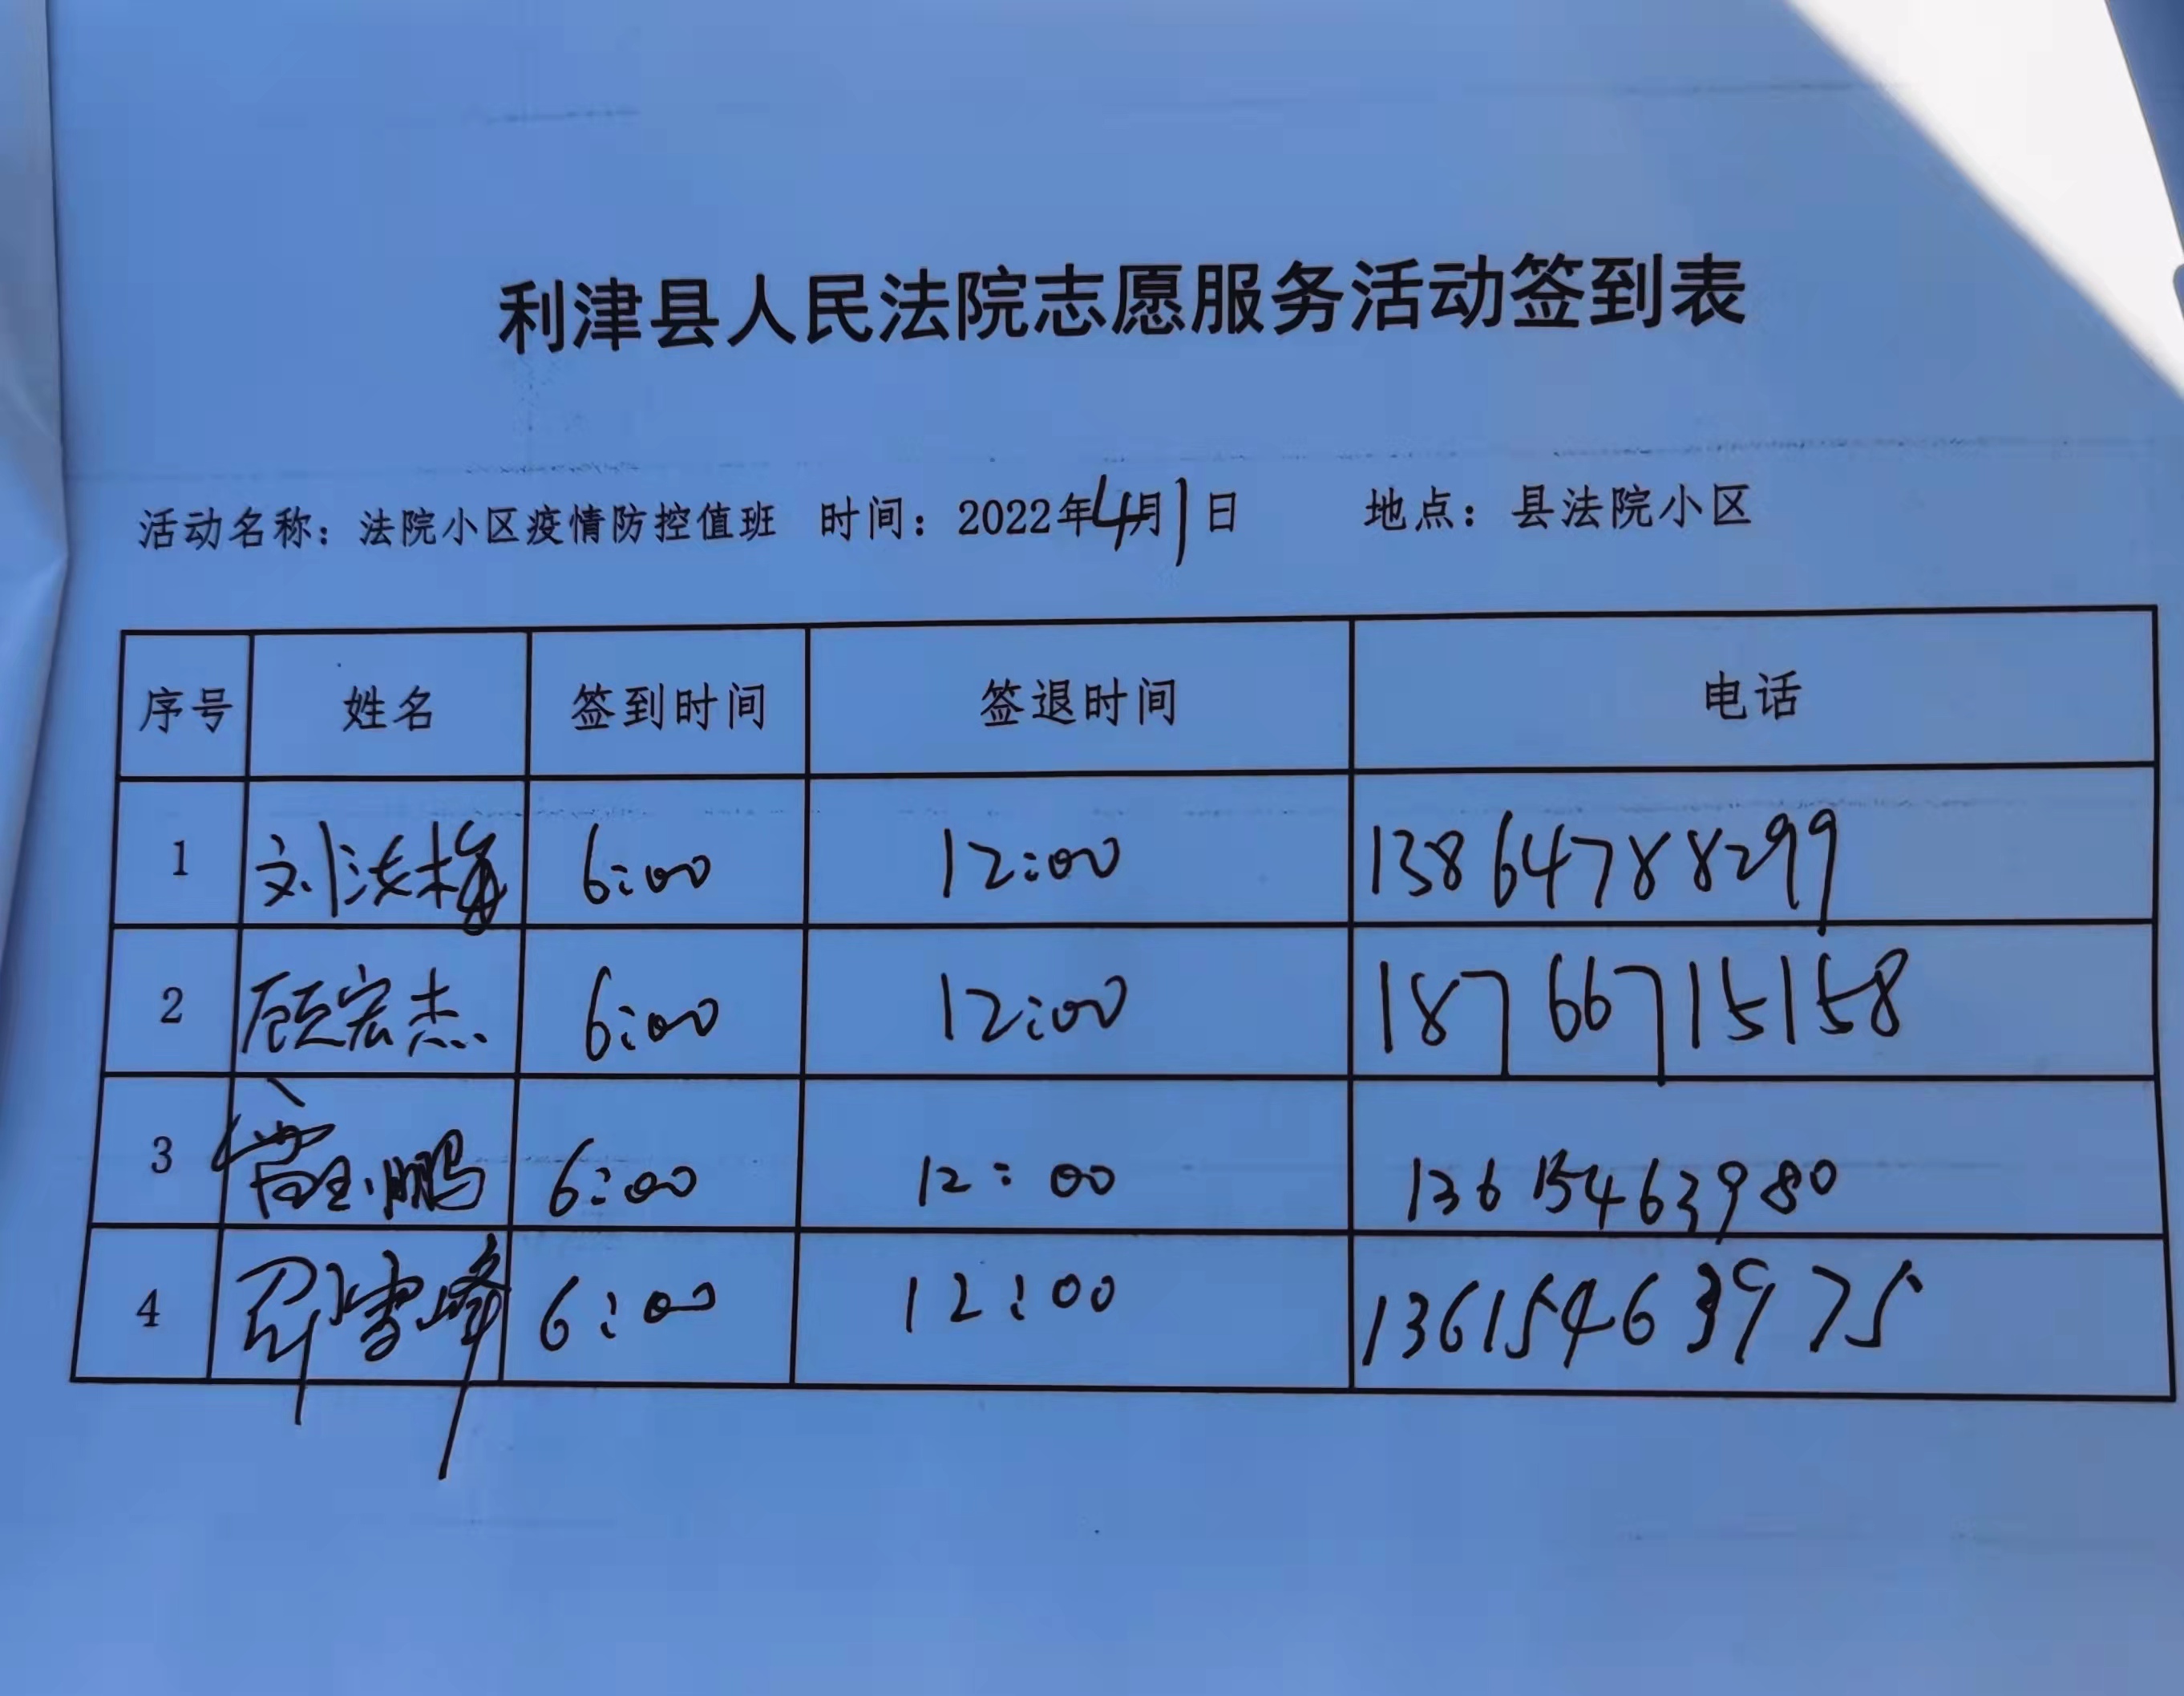 利津县人民法院志愿服务活动签到表
活动名称：法院小区疫情防控值班 时间：2022年4月1日 地点：县法院小区
序号 姓名 签到时间 签退时间 电话
1 刘法梅 6:00 12:00 13864788299
2 顾宏杰 6:00 12:00 18766715158
3 6:00 12:00 13615463980
4 6:00 12:00 13615463975